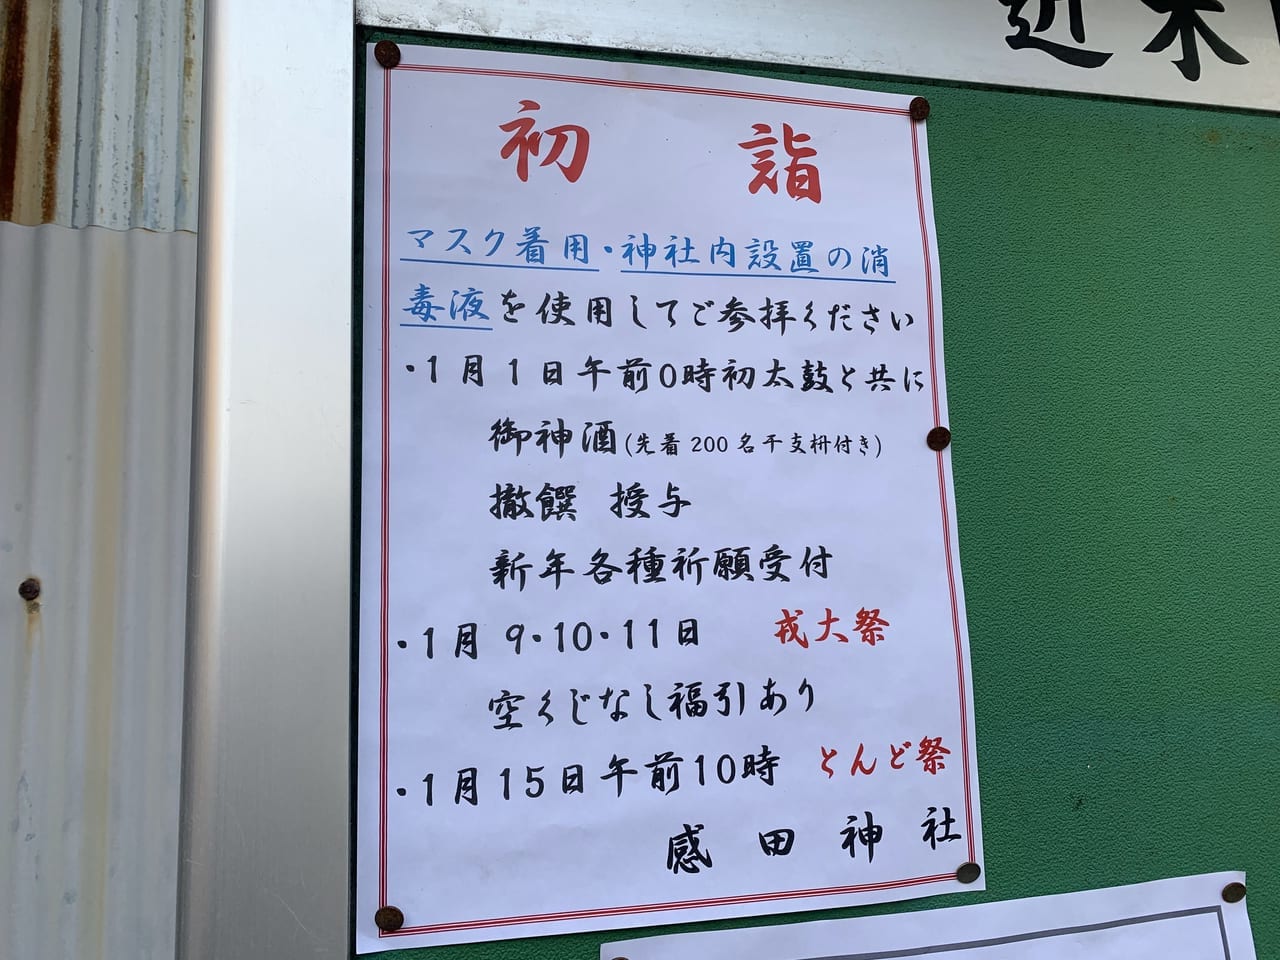 近木
初詣
マスク着用・神社内設置の消
毒液を使用してご参拝ください
・1月1日午前0時初太鼓と共に
御神酒(先着200名干支枡付き)
撤饌 授与
新年各種祈願受付
・1月9・10・11日 戎大祭
空くじなし福引あり
・1月15日午前10時 とんど祭
感田神社